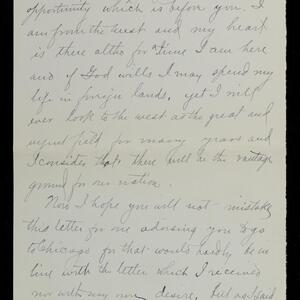 opportunity which is before you. I
am from the West and my heart
is there altho for time I am here
and if God wills I may spend my
life in foreign lands, yet I will
ever look to the west as the great and
urgent field for many years and
I consider that there will be the vantage
ground for our nation.
Now I hope you will not mistake
this letter for one advising you to go
to Chicago for that would hardly be in
line with the letter which I received
nor with my own desire, But as I said